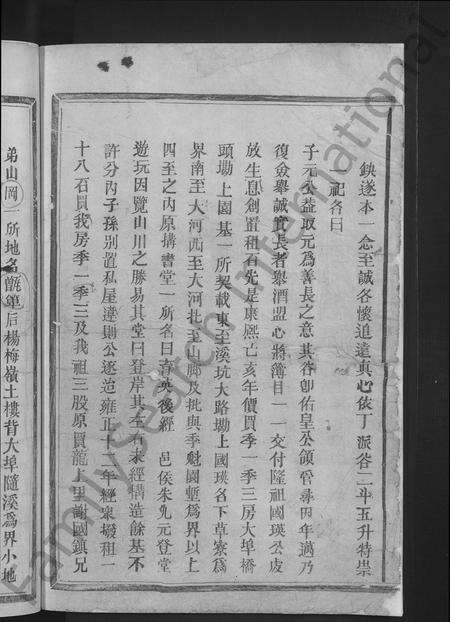 鈌遂本一念至誠各懷追遠眞心依丁派谷二斗五升特祟
一祀各曰
子元公益取元爲善長之意其谷卽佑皇公領管尋因年邁乃
復僉舉誠實長者舉酒盟心將簿目一一交付隆祖國瑛公處
放生息創置租石先是康熙亡亥年價買季一季三房大埠橋
頭墈上園基一所契載東至溪坑大路墈上國瑛名下草寮爲
界南至大河西至大河北至山脚及批與季魁園塹爲界以上
四至之內原搆書堂一所名曰育英後經 邑侯朱先元登堂
遊玩因覽山川之勝易其堂曰登岸其左右未經構造餘基不
許分內子孫別置私屋違則公逐造雍正十一年經衆墩租一
十八石買我房季一季三及我祖三股原買龍上里謝國鎮兄
弟山岡一所地名 窰后楊梅嶺土樓背大埠隨溪爲界小地
FamilySearch International